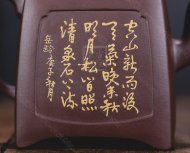 空山新雨後
天氣晚來秋
明月松间照
清泉石上流
庚子秋月